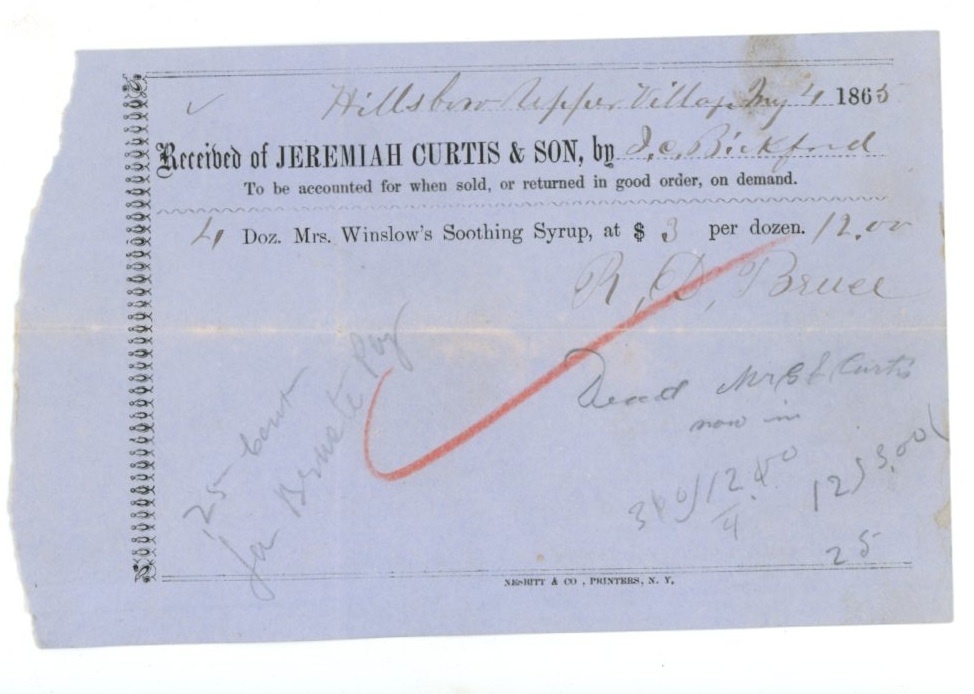 Hillsboro Upper Village May 4 1865
Received of JEREMIAH CURTIS & SON, by J. C. Bickford
To be accounted for when sold, or returned in good order, on demand.
4 Doz. Mrs. Winslow's Soothing Syrup, at $ 3 per dozen. 12.00
R, D, Bruce
Dead Mrs L Curtis
now in
300)12.00
4
12)3.00(
25
25 cent
for Bruce to Pay
NESBITT & CO, PRINTERS, N. Y,